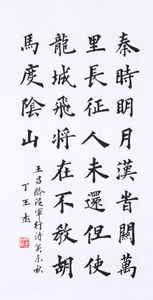 秦時明月漢旹關萬
里長征人未還但使
龍城飛將在不教胡
馬度陰山
王昌齡從軍行詩癸未秋